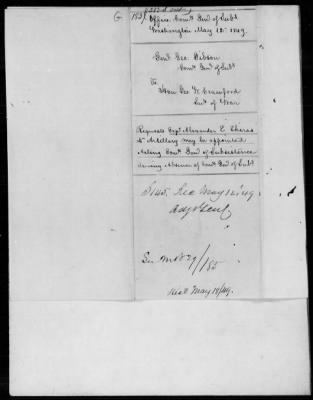 G 183/
Office Comt. Genl of Subt.
Washington May 12. 1849.
Genl. Geo. Gibson
Comt. Genl of Subt
To
Hon. Geo. W. Crawford
Sect. of War
Requests Capt. Alexander E. Shiras
4th Artillery may be appointed
Acting Comt. Genl of Subsistence
during absence of Comt. Genl of Subt
May 12. 49
Adjt Genl
185
Recd May 12/49.